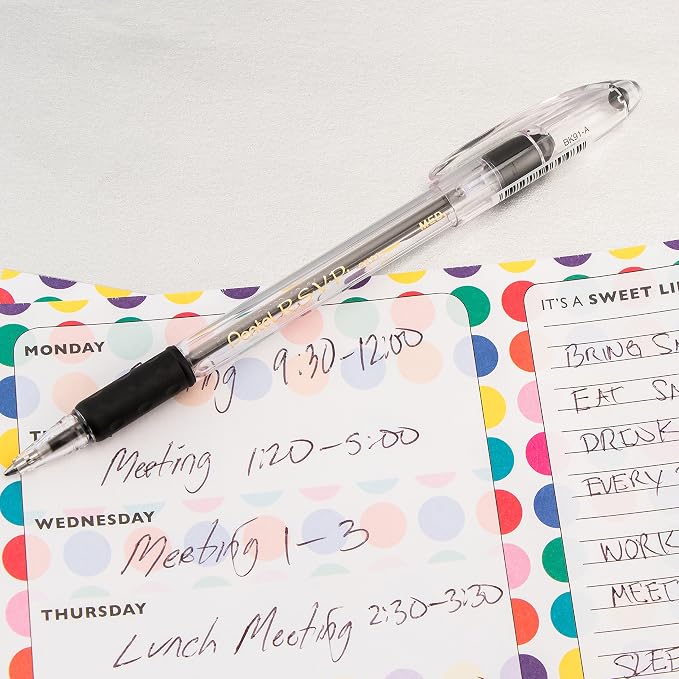 BK91-A
MED.
Pentel R.S.V.P.
MONDAY
9:30-12:00
Meeting 1:20-5:00
WEDNESDAY
Meeting 1-3
THURSDAY
Lunch Meeting 2:30-3:30
IT'S A SWEET
BRING
EAT
DRINK
EVERY
WORK